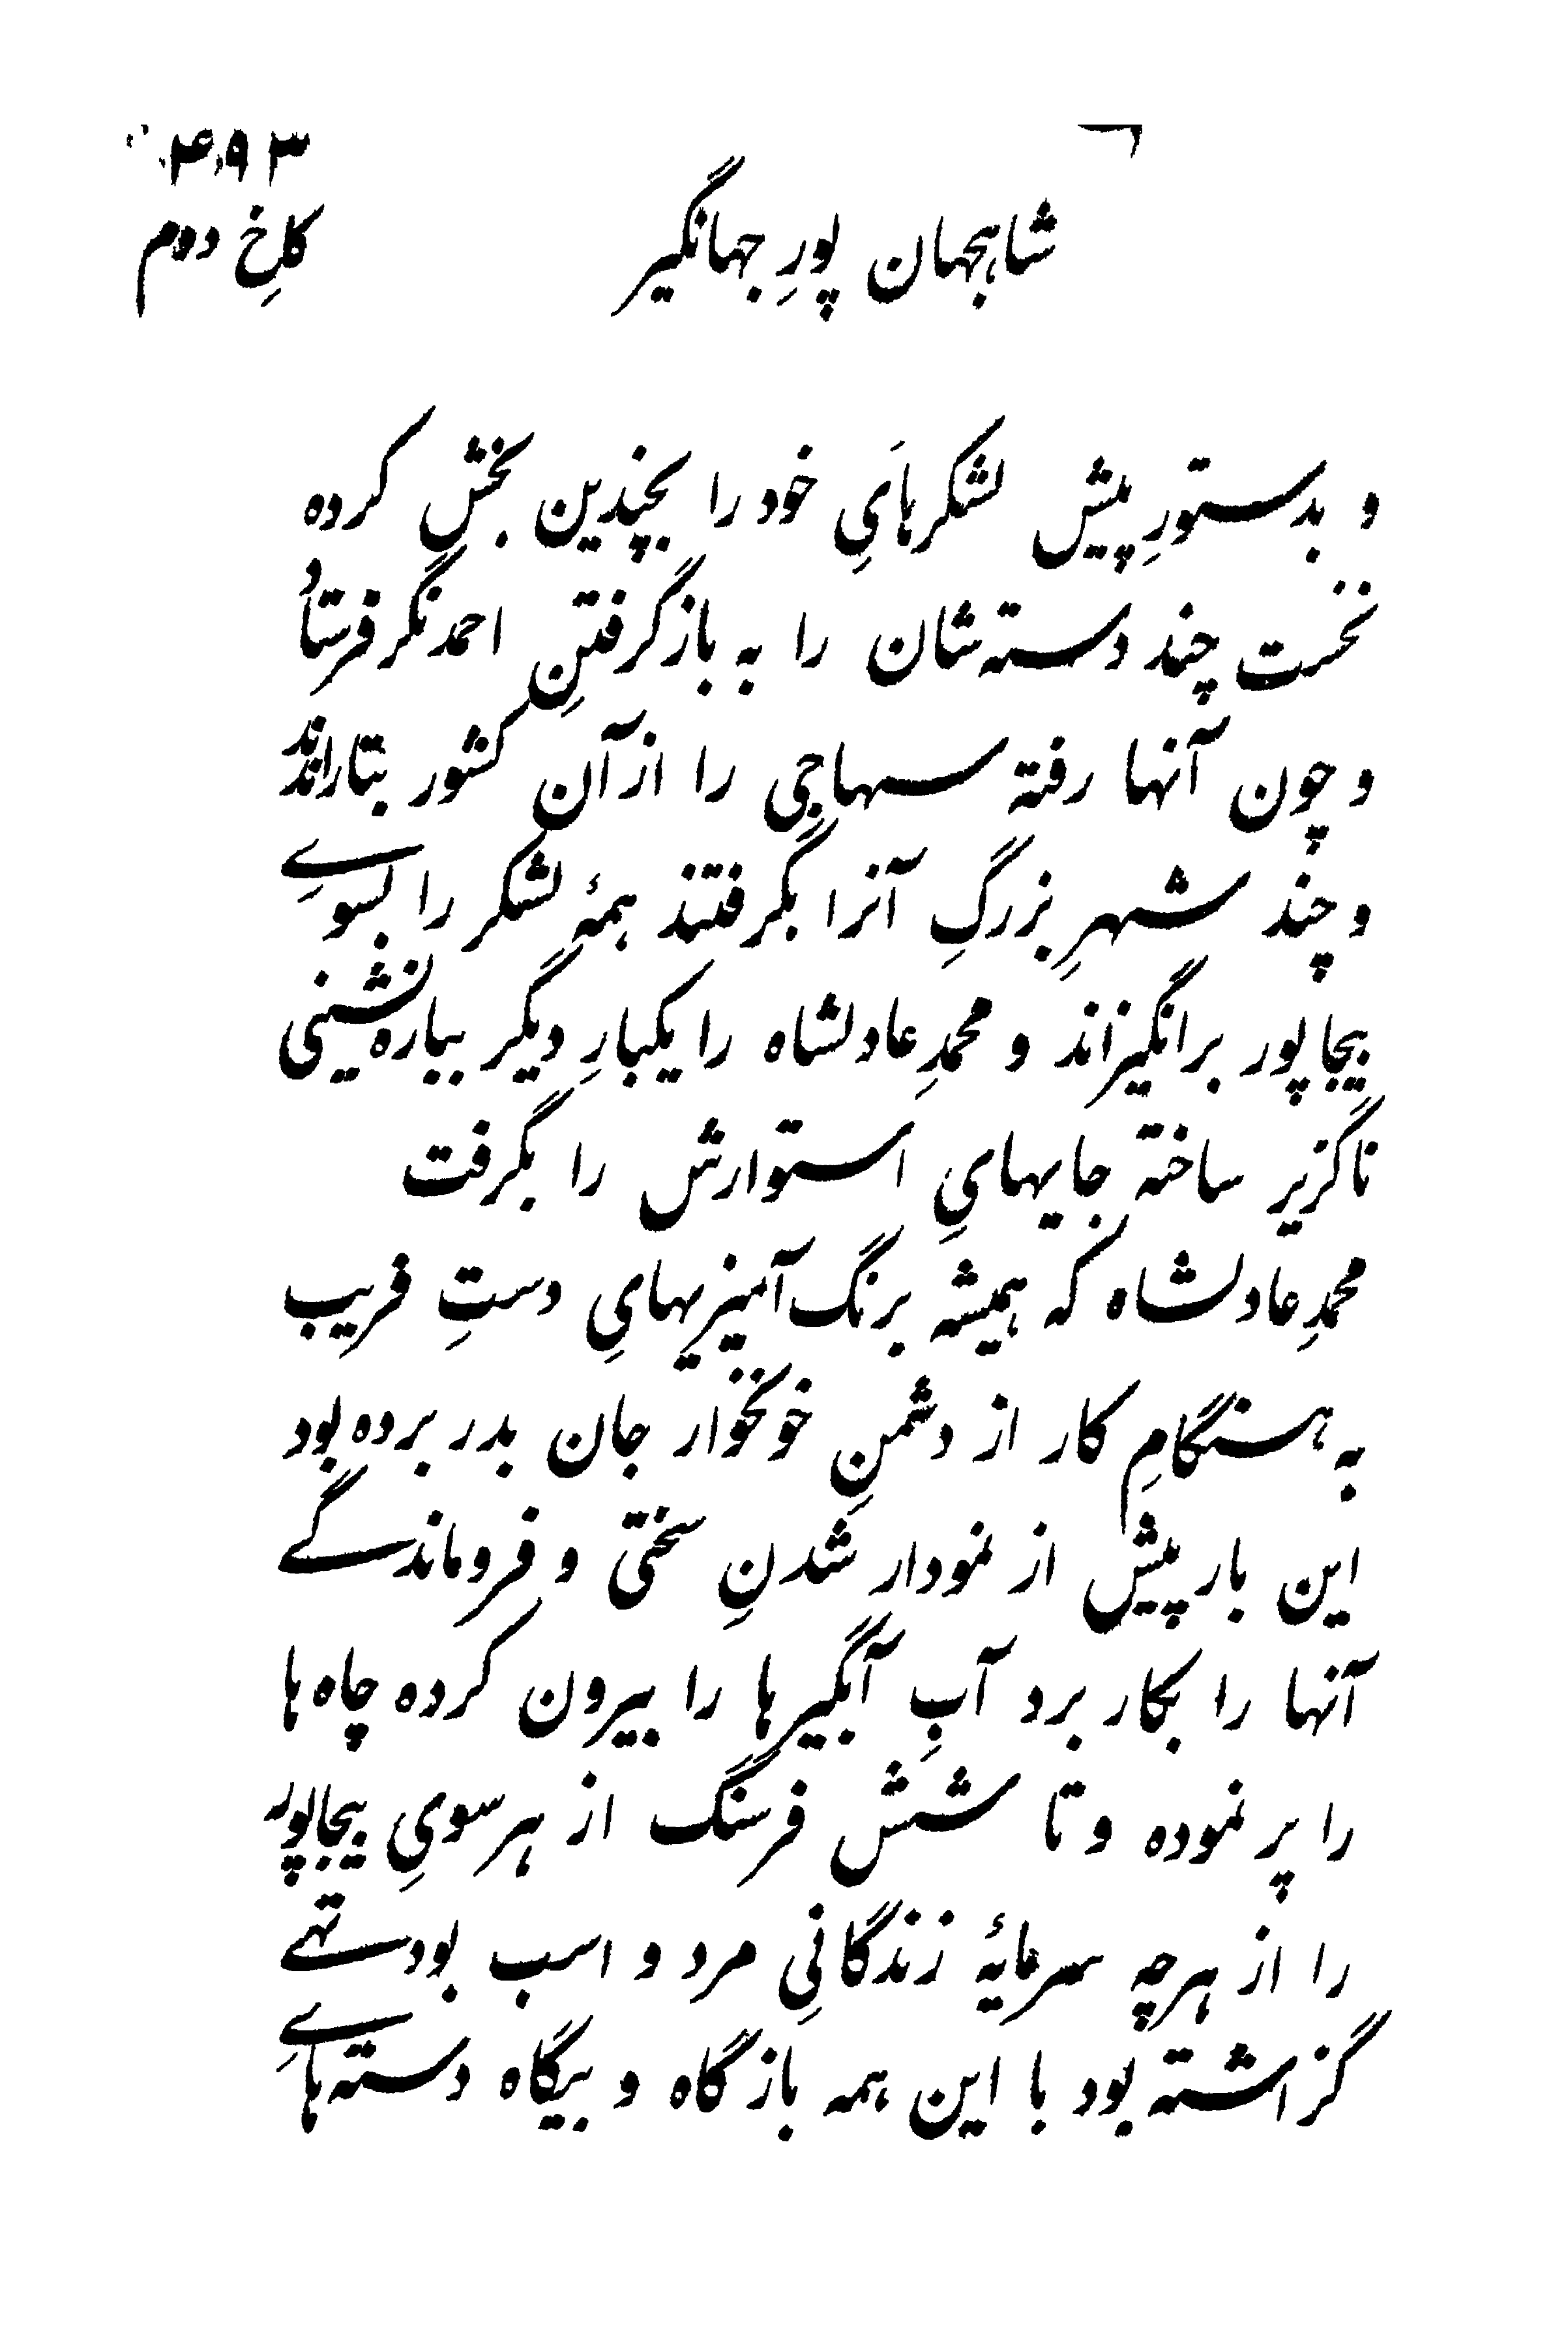 ۴۹۳
شاهجهان پورِ جهانگیر
کاخِ دوم
و بدستورِ پیش لشکرهایِ خود را بچندین بخش کرده
نخست چند دسته شان را به باز گرفتنِ احمد نگر فرستاد
و چون آنها رفته سهاجی را از آن کشور بتاراندند
و چند شهرِ بزرگِ آنرا بگرفتند همهٔ لشکر را بسویِ
بیجاپور برانگیزاند و محمدِ عادلشاه را یکبارِ دیگر بباره نشینی
ناگزیر ساخته جایهایِ استوارش را بگرفت
محمدِ عادلشاه که همیشه برنگ آمیزیهایِ دستِ فریب
به هنگامِ کار از دشمنِ خونخوار جان بدر برده بود
این بار پیش از نمودار شدنِ سختی و فروماندگے
آنها را بکار برد آبِ آبگیر ها را بیرون کرده چاه ها
را پر نموده و تا شش فرسنگ از هر سویِ بیجاپور
را از هر چه سرمایهٔ زندگانیِ مرد و اسب بود تهے
گزاشته بود با این همه باز گاه و بیگاه دسته هاےِ